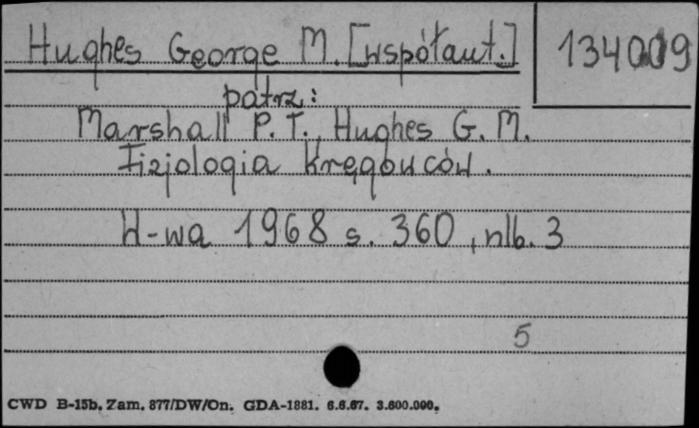 Hughes George M. [współaut.]
134009
patrz:
Marshall P. T., Hughes G. M.
Fizjologia kręgowców.
W-wa 1968 s. 360, nlb. 3
5
CWD B-15b, Zam. 877/DW/On. GDA-1881. 6.6.67. 3.600.000.